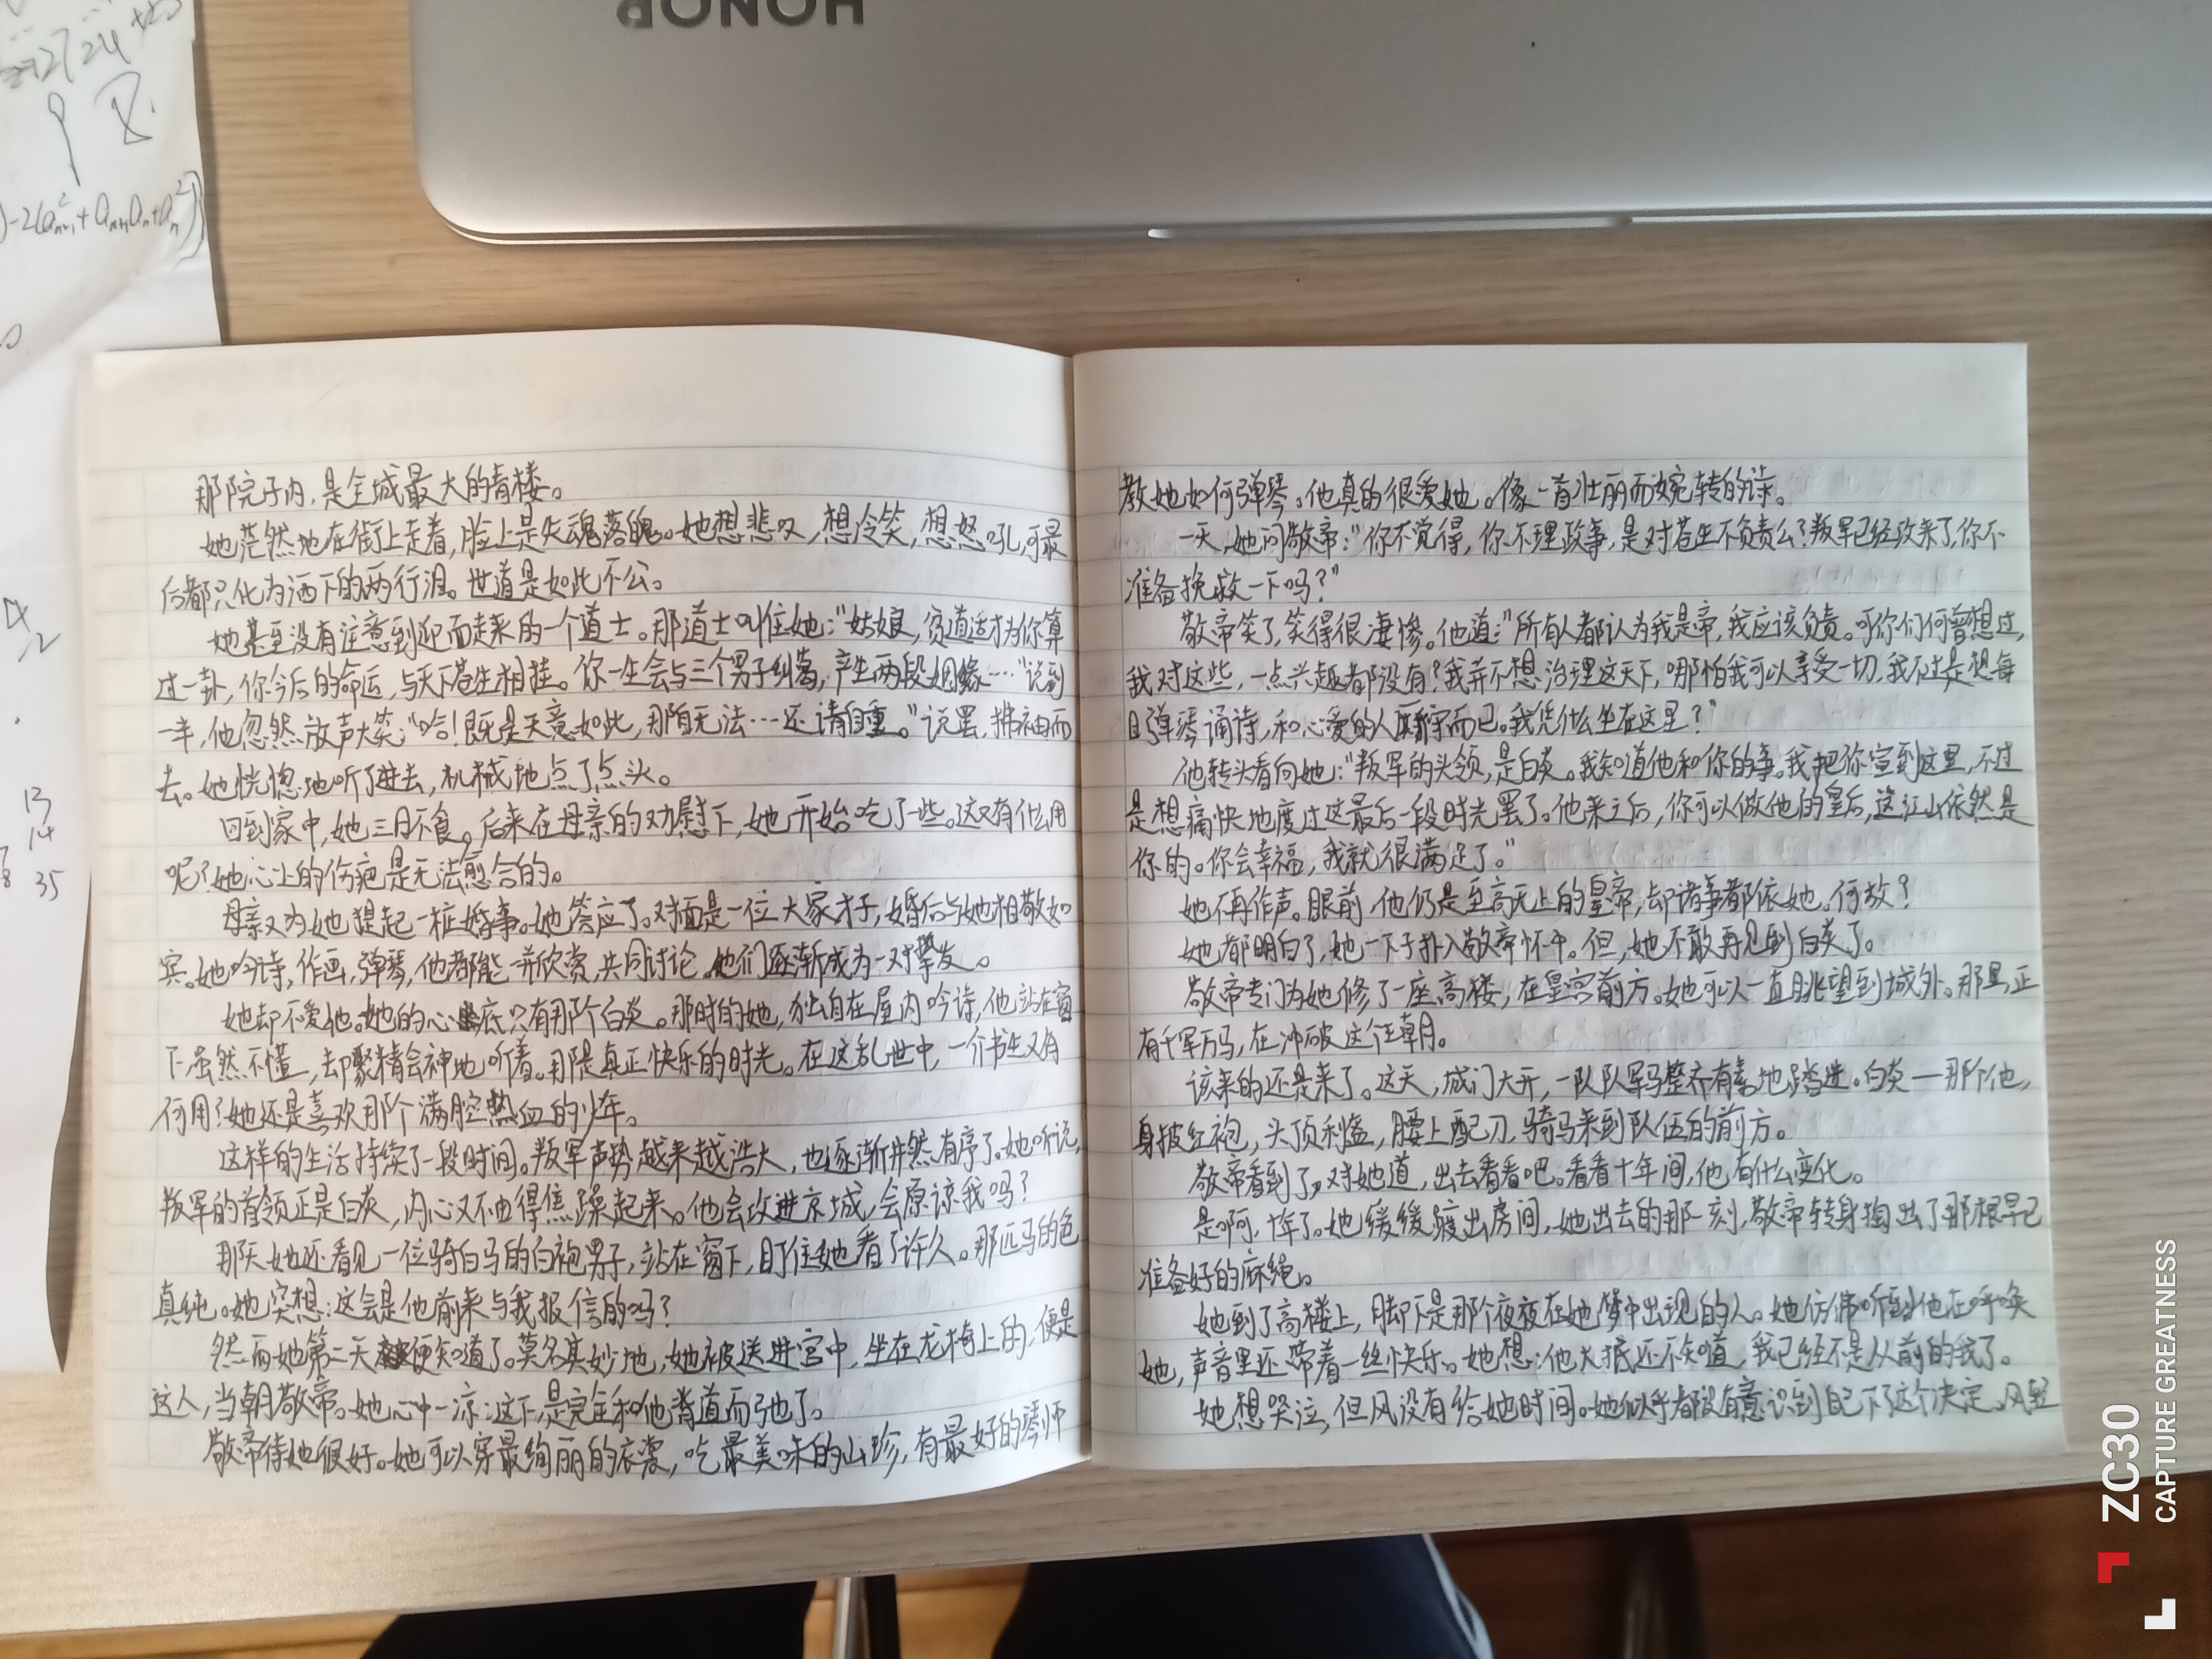 HONOR
27 24
)-2(aₙ₊₁²+aₙ₊₁aₙ+aₙ²)
13
14
35
那院子内,是全城最大的青楼。
她茫然地在街上走着,脸上是失魂落魄。她想悲叹,想冷笑,想怒吼,可最
后都只化为洒下的两行泪。世道是如此不公。
她甚至没有注意到迎面走来的一个道士。那道士叫住她:“姑娘,贫道适才为你算
过一卦,你今后的命运,与天下苍生相挂。你一生会与三个男子纠葛,产生两段姻缘……”说到
一半,他忽然放声大笑:“哈!既是天意如此,那自无法…还请自重。”说罢,拂袖而
去。她恍惚地听了进去,机械地点了点头。
回到家中,她三日不食。后来在母亲的劝慰下,她开始吃了一些。这又有什么用
呢?她心上的伤疤是无法愈合的。
母亲又为她提起一桩婚事。她答应了。对面是一位大家才子,婚后与她相敬如
宾。她吟诗,作画,弹琴,他都能一并欣赏,共同讨论。他们逐渐成为一对挚友。
她却不爱他。她的心底只有那个白炎。那时的她,独自在屋内吟诗,他站在窗
下虽然不懂,却聚精会神地听着。那是真正快乐的时光。在这乱世中,一个书生又有
何用?她还是喜欢那个满腔热血的少年。
这样的生活持续了一段时间。叛军声势越来越浩大,也逐渐井然有序了。她听说,
叛军的首领正是白炎,内心又不由得焦躁起来。他会攻进京城,会原谅我吗?
那天她还看见一位骑白马的白袍男子,站在窗下,盯住她看了许久。那匹马的色
真纯。她突想:这会是他前来与我报信的吗?
然而她第二天便知道了。莫名其妙地,她被送进宫中,坐在龙椅上的,便是
这人,当朝敬帝。她心中一凉:这下,是完全和他背道而驰了。
敬帝待她很好。她可以穿最绚丽的衣裳,吃最美味的山珍,有最好的琴师
教她如何弹琴。他真的很爱她。像一首壮丽而婉转的诗。
一天,她问敬帝:“你不觉得,你不理政事,是对苍生不负责么?叛军已经攻来了,你不
准备挽救一下吗?”
敬帝笑了,笑得很凄惨。他道:“所有人都认为我是帝,我应该负责。可你们何曾想过,
我对这些,一点兴趣都没有?我并不想治理这天下,哪怕我可以享受一切,我不过是想每
日弹琴诵诗,和心爱的人厮守而已。我凭什么坐在这里?”
他转头看向她:“叛军的头领,是白炎。我知道他和你的事。我把你宣到这里,不过
是想痛快地度过这最后一段时光罢了。他来之后,你可以做他的皇后,这江山依然是
你的。你会幸福,我就很满足了。”
她不再作声。眼前,他仍是至高无上的皇帝,却诸事都依她。何故?
她都明白了,她一下子扑入敬帝怀中。但,她不敢再见到白炎了。
敬帝专门为她修了一座高楼,在皇宫前方。她可以一直眺望到城外。那里,正
有千军万马,在冲破这个王朝。
该来的还是来了。这天,城门大开,一队队军马整齐有素地踏进。白炎——那个他,
身披红袍,头顶利盔,腰上配刀,骑马来到队伍的前方。
敬帝看到了,对她道,出去看看吧。看看十年间,他有什么变化。
是啊,十年了。她缓缓踱出房间,她出去的那一刻,敬帝转身掏出了那根早已
准备好的麻绳。
她到了高楼上,脚下是那个夜夜在她梦中出现的人。她仿佛听到他在呼唤
她,声音里还带着一丝快乐。她想:他大抵还不知道,我已经不是从前的我了。
她想哭泣,但风没有给她时间。她似乎都没有意识到自己下了这个决定。风轻
ZC30
CAPTURE GREATNESS